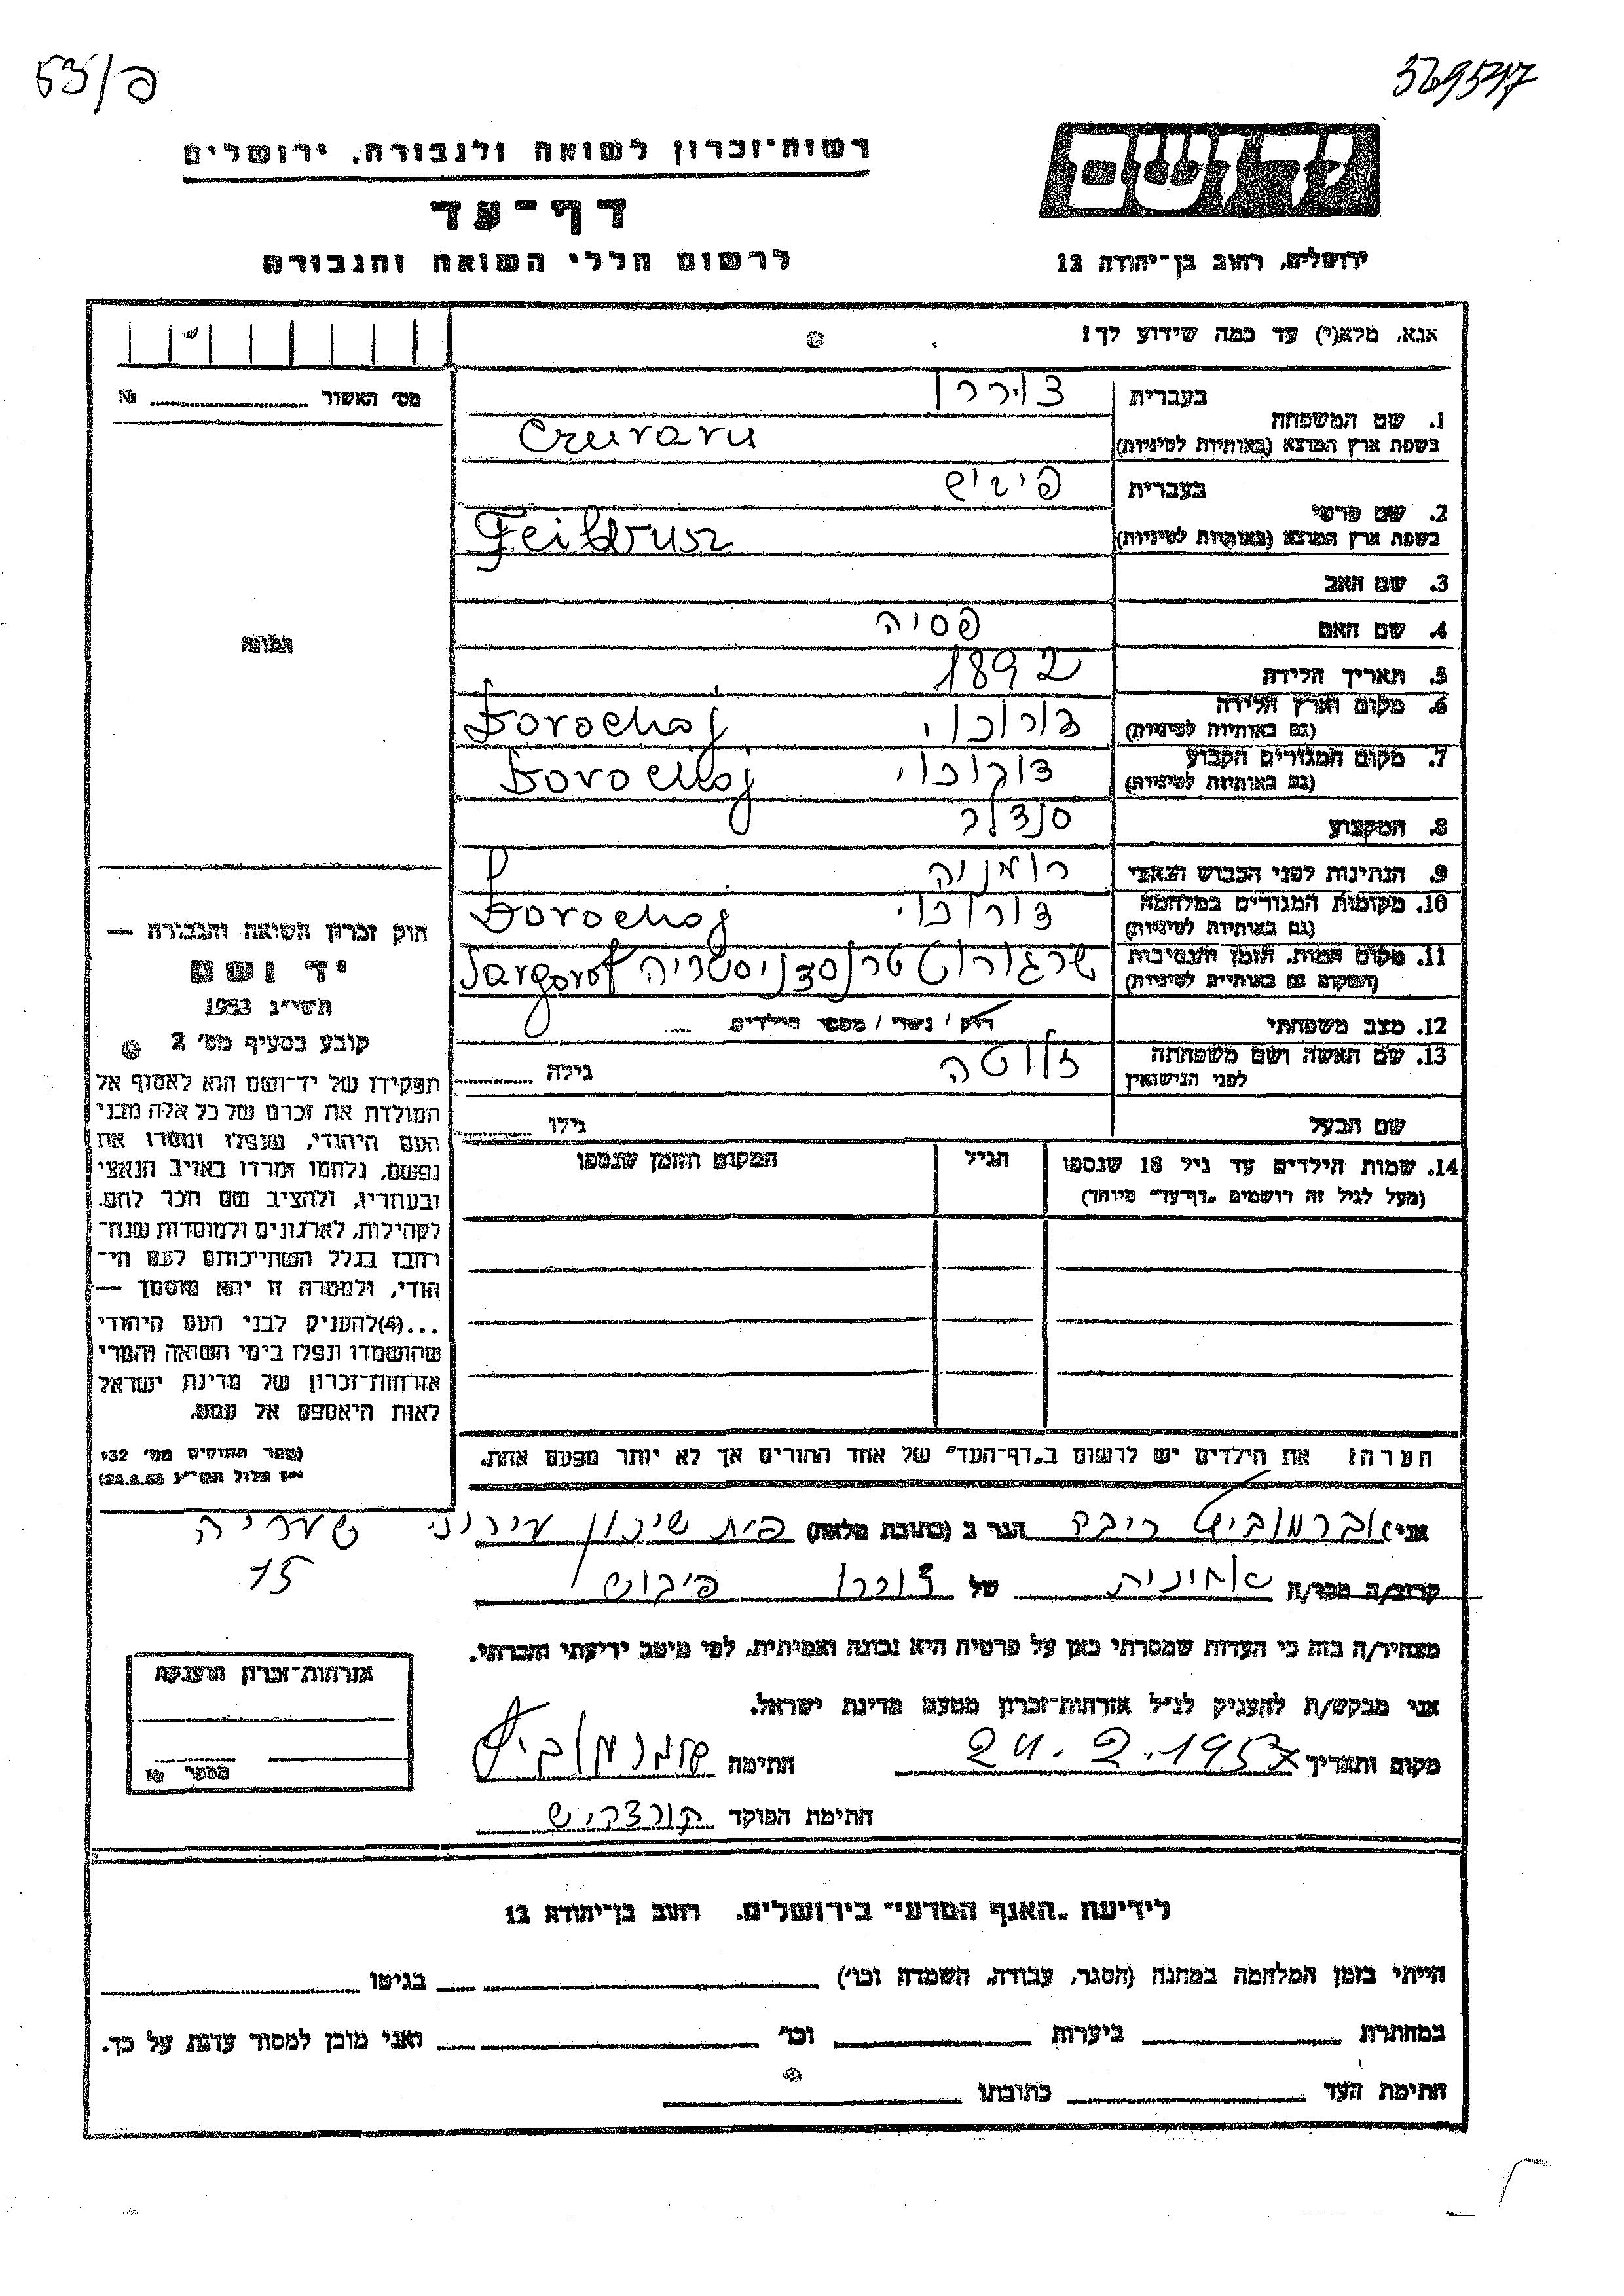 53/פ
369517
רשות-זכרון לשואה ולגבורה, ירושלים
יד ושם
דף-עד
לרשום חללי השואה והגבורה
ירושלים, רחוב בן-יהודה 12
אנא, מלא(י) עד כמה שידוע לך!
מס' האשור №
1. שם המשפחה
בעברית צוררו
בשפת ארץ המוצא (באותיות לטיניות) Cruraru
2. שם פרטי
בעברית פיביש
בשפת ארץ המוצא (באותיות לטיניות)
3. שם האב
4. שם האם פסיה
5. תאריך הלידה 1892
6. מקום וארץ הלידה
(גם באותיות לטיניות) דורוכוי Dorochoj
7. מקום המגורים הקבוע
(גם באותיות לטיניות) דורוכוי Dorochoj
8. המקצוע סנדלר
9. הנתינות לפני הכבוש הנאצי רומניה
10. מקומות המגורים במלחמה
(גם באותיות לטיניות) דורוכוי Dorochoj
11. מקום המות, הזמן והנסיבות
(המקום גם באותיות לטיניות) שרגורוט טרנסדניסטריה Sargorof
12. מצב משפחתי רווק / נשוי / מספר הילדים
13. שם האשה ושם משפחתה
לפני הנישואין זלוטה גילה
שם הבעל גילו
14. שמות הילדים עד גיל 18 שנספו
(מעל לגיל זה רושמים "דף-עד" מיוחד)
הגיל
המקום והזמן שנספו
הערה: את הילדים יש לרשום ב"דף-העד" של אחד ההורים אך לא יותר מפעם אחת.
תמונה
חוק זכרון השואה והגבורה —
יד ושם
תשי"ג 1953
קובע בסעיף מס' 2
תפקידו של יד-ושם הוא לאסוף אל
המולדת את זכרם של כל אלה מבני
העם היהודי, שנפלו ומסרו את
נפשם, נלחמו ומרדו באויב הנאצי
ובעוזריו, ולהציב שם וזכר להם,
לקהילות, לארגונים ולמוסדות שנח-
רבו בגלל השתייכותם לעם הי-
הודי, ולמטרה זו יהא מוסמך —
...(4) להעניק לבני העם היהודי
שהושמדו ונפלו בימי השואה והמרי
אזרחות-זכרון של מדינת ישראל
לאות היאספם אל עמם.
(ספר החוקים מס' 132
י"ז אלול תשי"ג 28.8.53)
אני אברמוביץ רבקה הגר ב (כתובת מלאה) בית שיכון עירוני שעריה
15
קרוב/ה מכר/ה אחינית של צוררו פיביש
מצהיר/ה בזה כי העדות שמסרתי כאן על פרטיה היא נכונה ואמיתית, לפי מיטב ידיעתי והכרתי.
אני מבקש/ת להעניק לנ"ל אזרחות-זכרון מטעם מדינת ישראל.
מקום ותאריך 24.2.1957 חתימה אברמוביץ
חתימת הפוקד
אזרחות-זכרון הוענקה
מספר №
לידיעת "האגף המדעי" בירושלים, רחוב בן-יהודה 12
הייתי בזמן המלחמה במחנה (הסגר, עבודה, השמדה וכו') בגיטו
במחתרת ביערות וכו' ואני מוכן למסור עדות על כך.
חתימת העד כתובתו